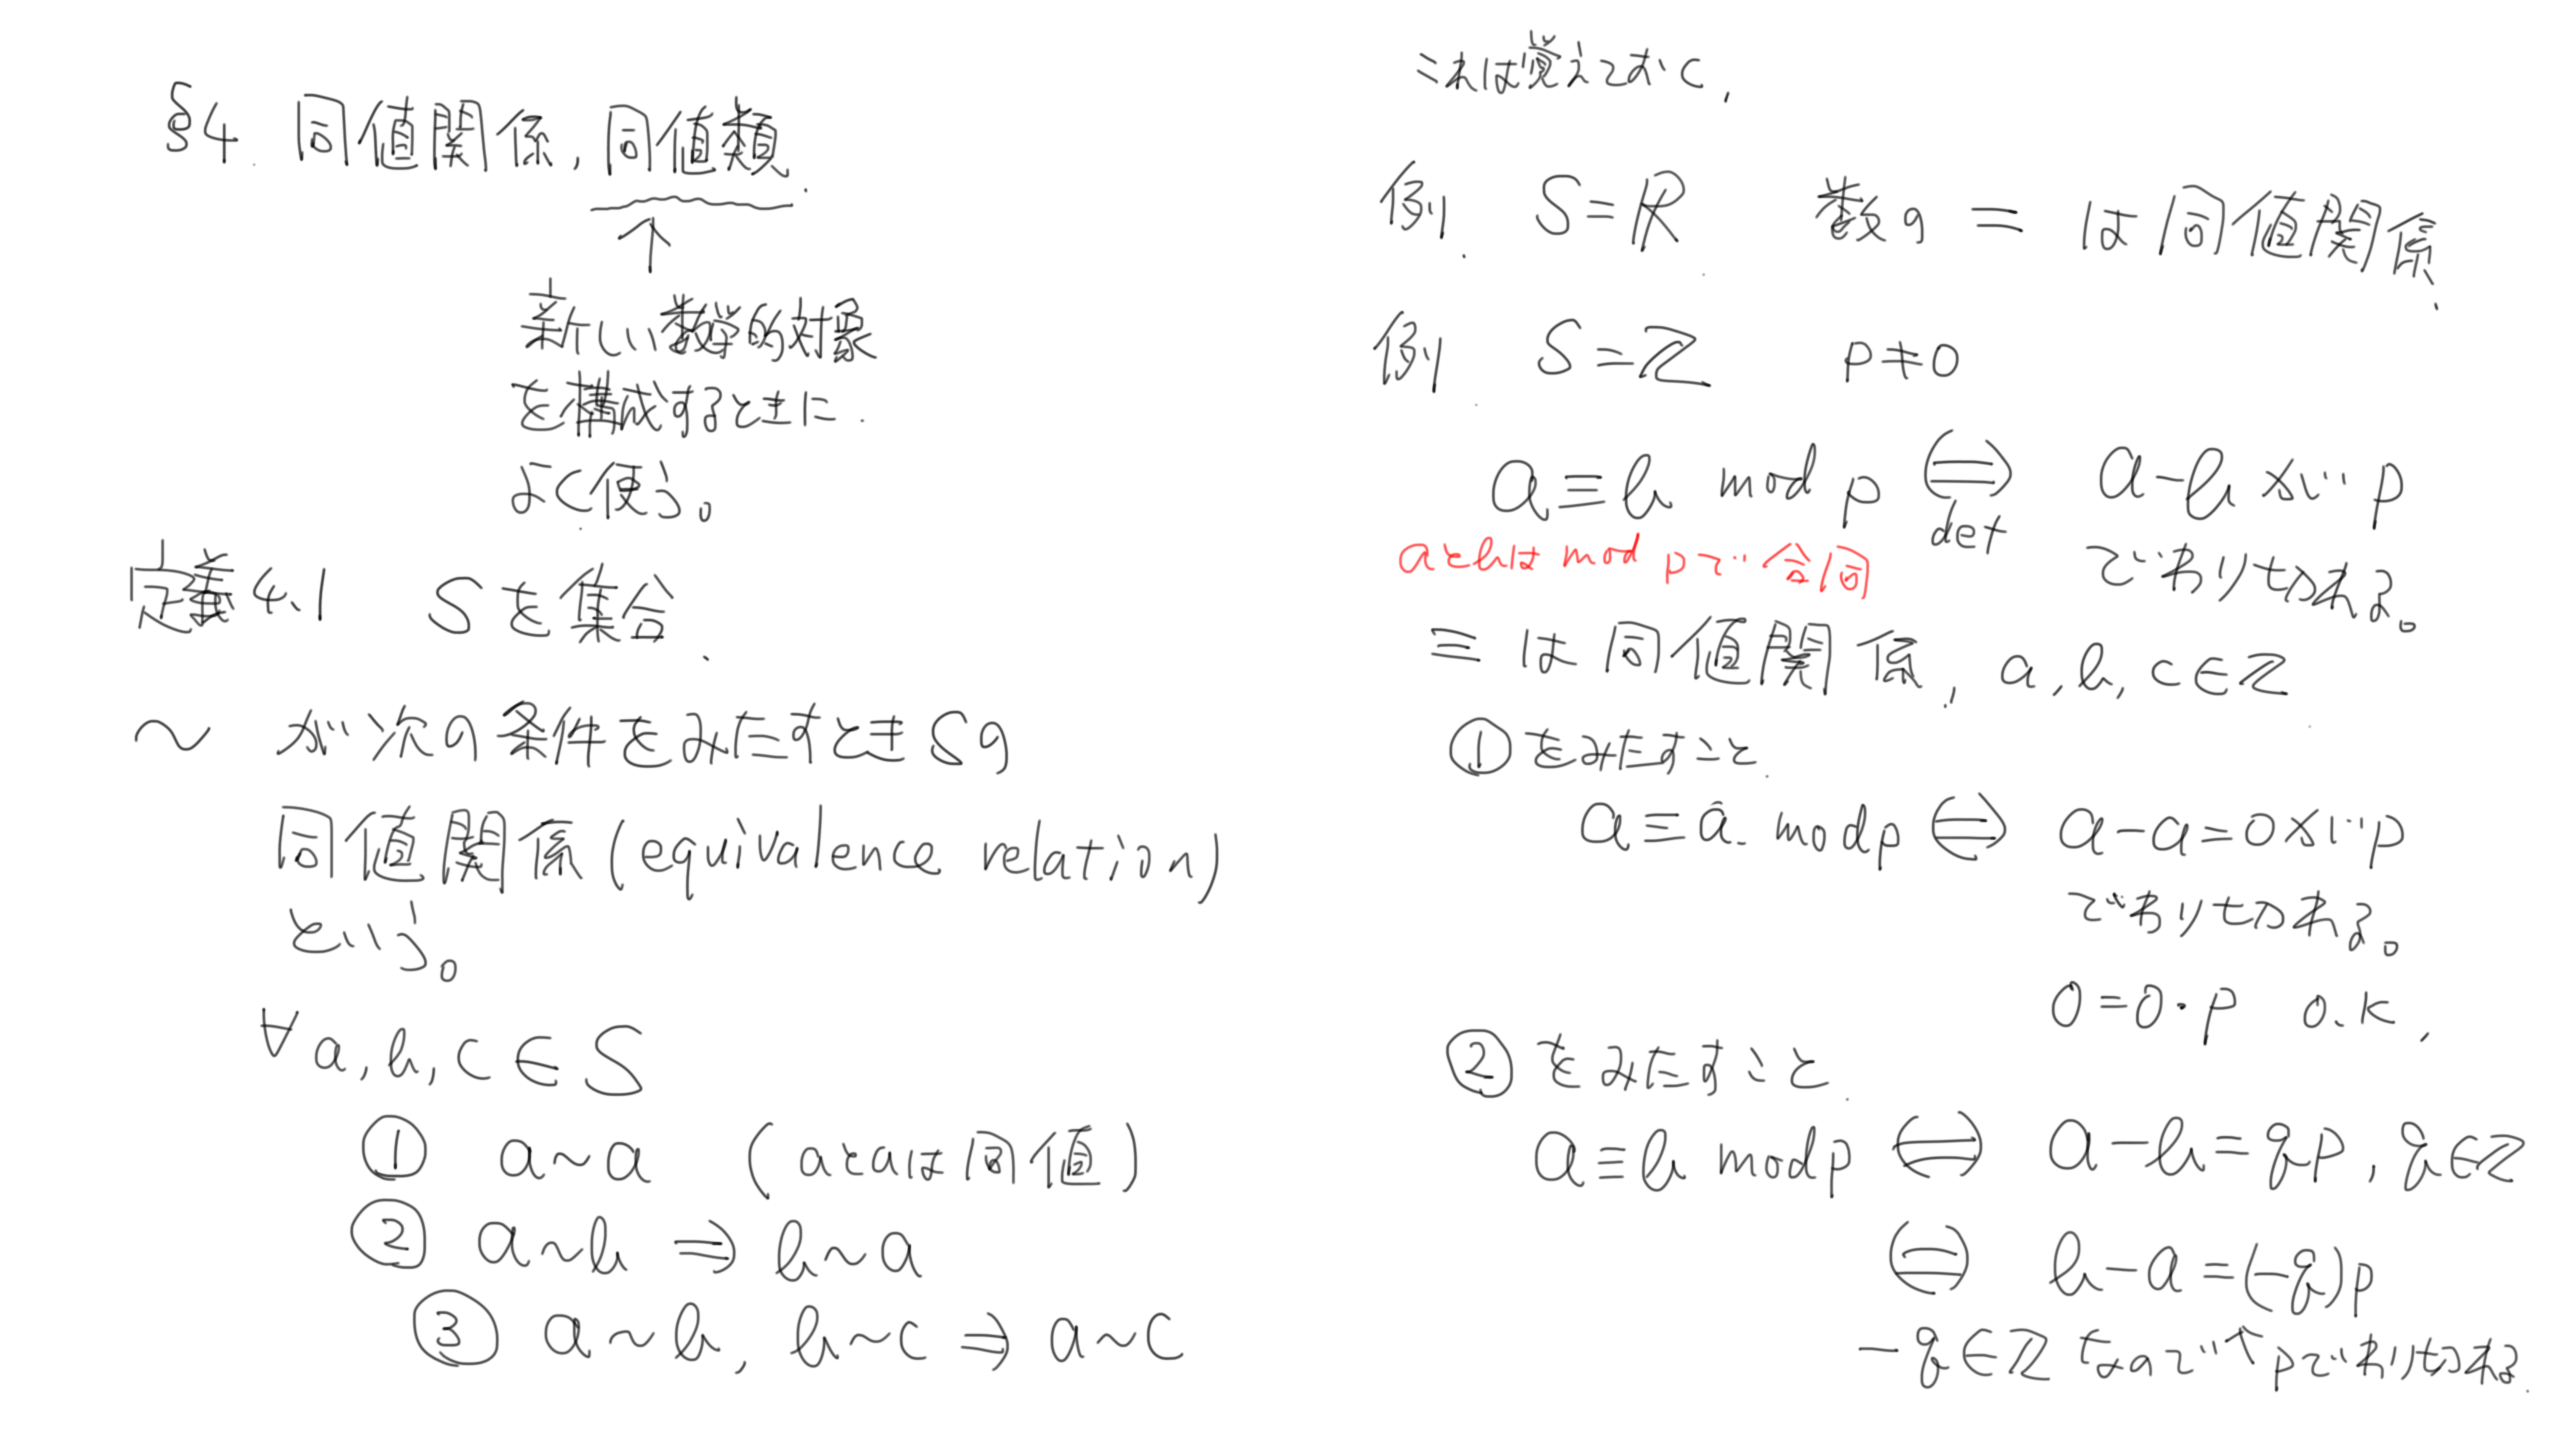 §4. 同値関係, 同値類.
↑
新しい数学的対象
を構成するときに
よく使う。
定義4.1 Sを集合.
~ が次の条件をみたすときSの
同値関係(equivalence relation)
という。
∀a,b,c∈S
① a~a (aとaは同値)
② a~b ⇒ b~a
③ a~b, b~c ⇒ a~c
これは覚えておく,
例. S=ℝ 数の = は同値関係.
例 S=ℤ p≠0
a≡b mod p ⇔ a-bがp
def
でわり切れる。
aとbは mod pで合同
≡ は同値関係, a,b,c∈ℤ
①をみたすこと.
a≡a mod p ⇔ a-a=0がp
でわり切れる。
0=0・p o.k,
②をみたすこと.
a≡b mod p ⇔ a-b=qp, q∈ℤ
⇔ b-a=(-q)p
-q∈ℤなので↑pでわり切れる.